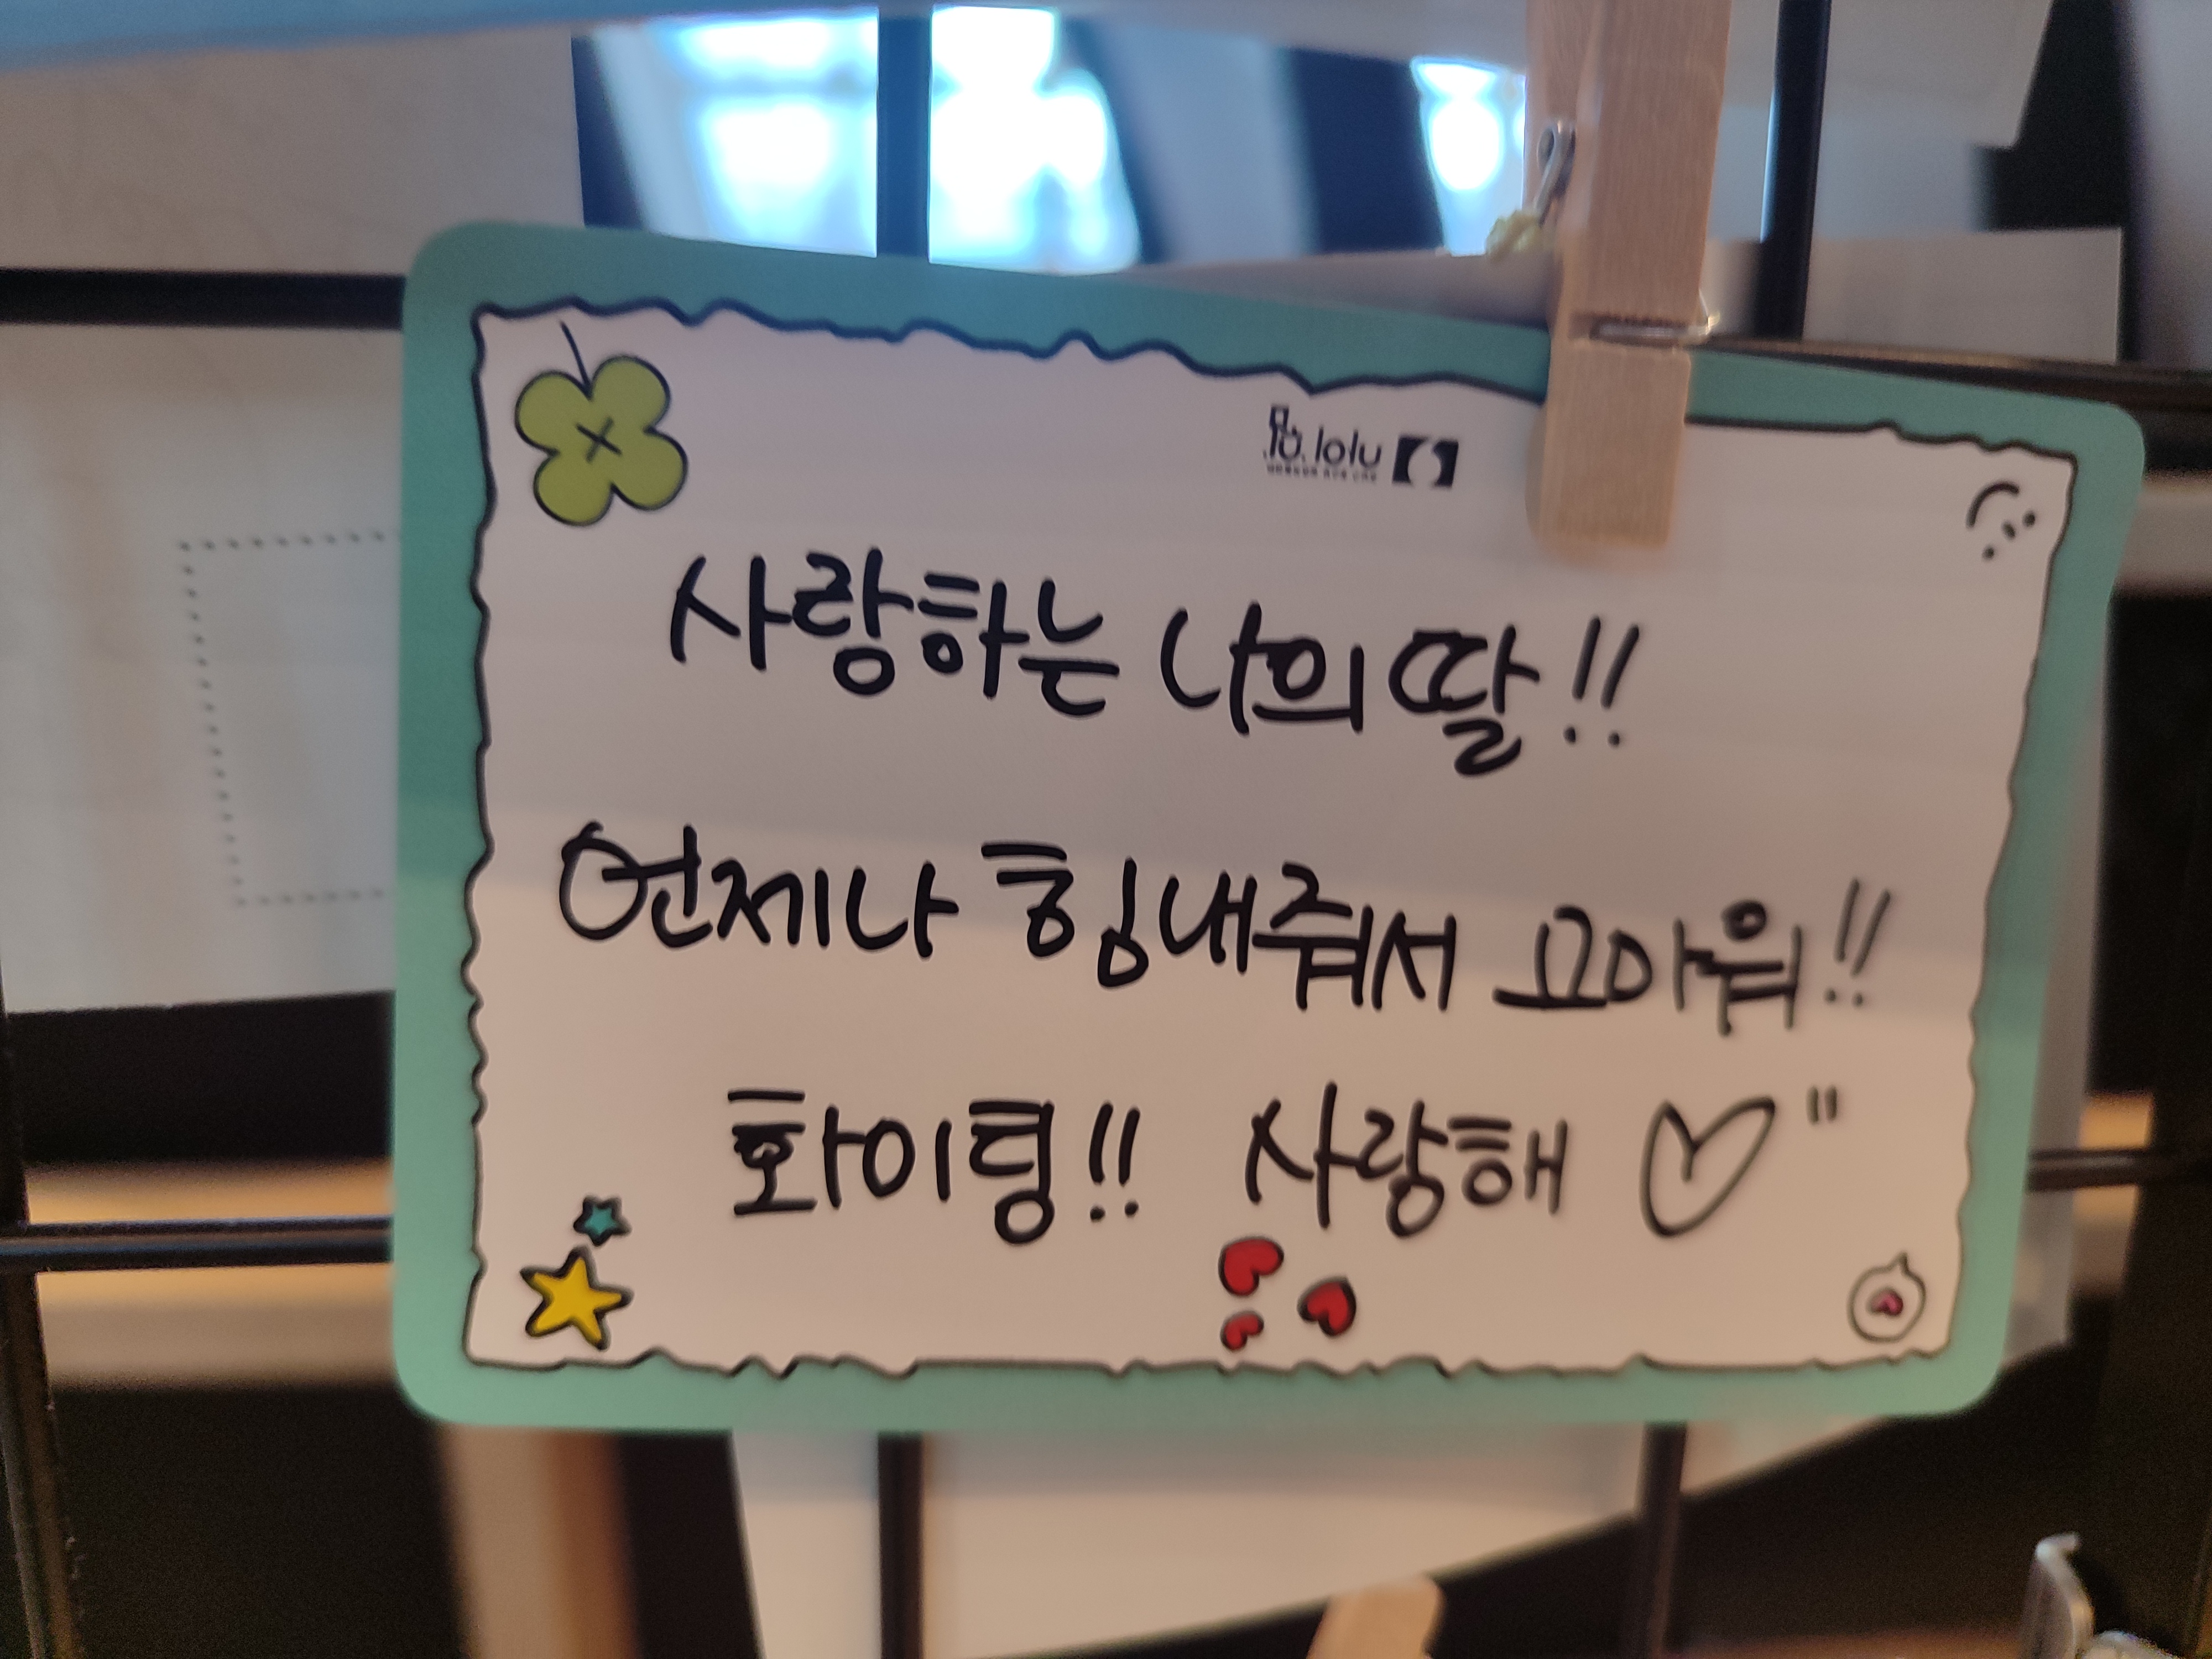 lolu
사랑하는 나의 딸!!
언제나 힘내줘서 고마워!!
화이팅!! 사랑해 ♡"